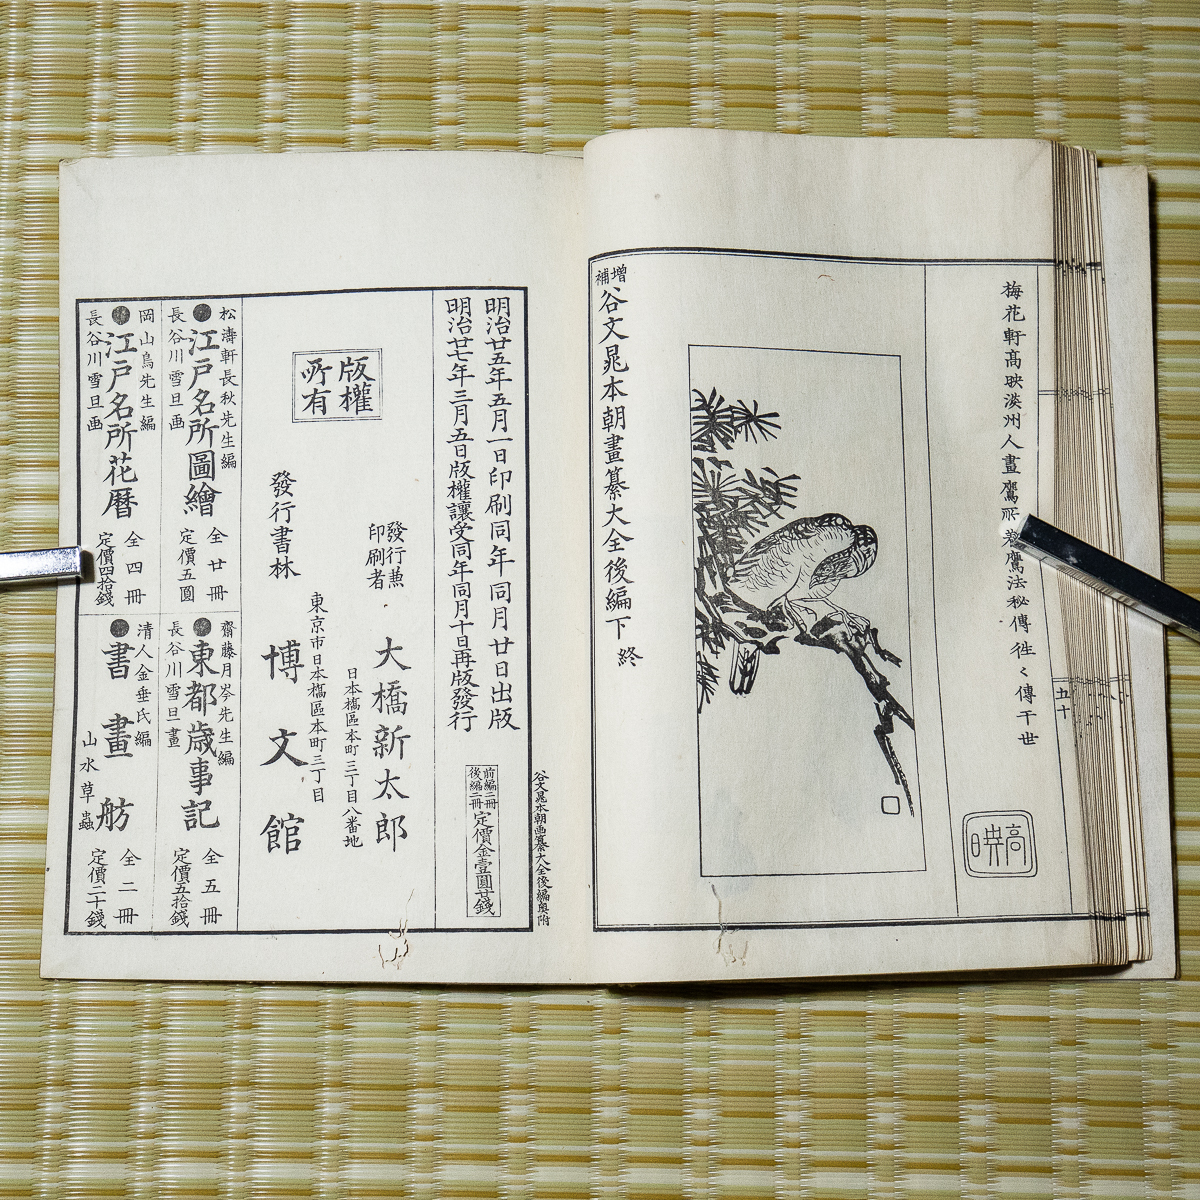 梅花軒高暎淡州人畫鷹所
鷹法秘傳徃々傳于世
高暎
五十
増補谷文晁本朝畫纂大全後編下終
谷文晁本朝画纂大全後編奥附
明治廿五年五月一日印刷同年同月廿日出版
前編二冊
後編二冊
定價金壹圓廿錢
明治廿七年三月五日版權讓受同年同月十日再版發行
版權
所有
發行兼
印刷者
大橋新太郎
日本橋區本町三丁目八番地
東京市日本橋區本町三丁目
發行書林
博文館
松濤軒長秋先生編
●江戸名所圖繪
全廿冊
長谷川雪旦画
定價五圓
岡山鳥先生編
●江戸名所花暦
全四冊
長谷川雪旦画
定價四拾錢
齋藤月岑先生編
●東都歳事記
全五冊
長谷川雪旦畫
定價五拾錢
清人金垂氏編
●書畫舫
全二冊
山水草蟲
定價二十錢